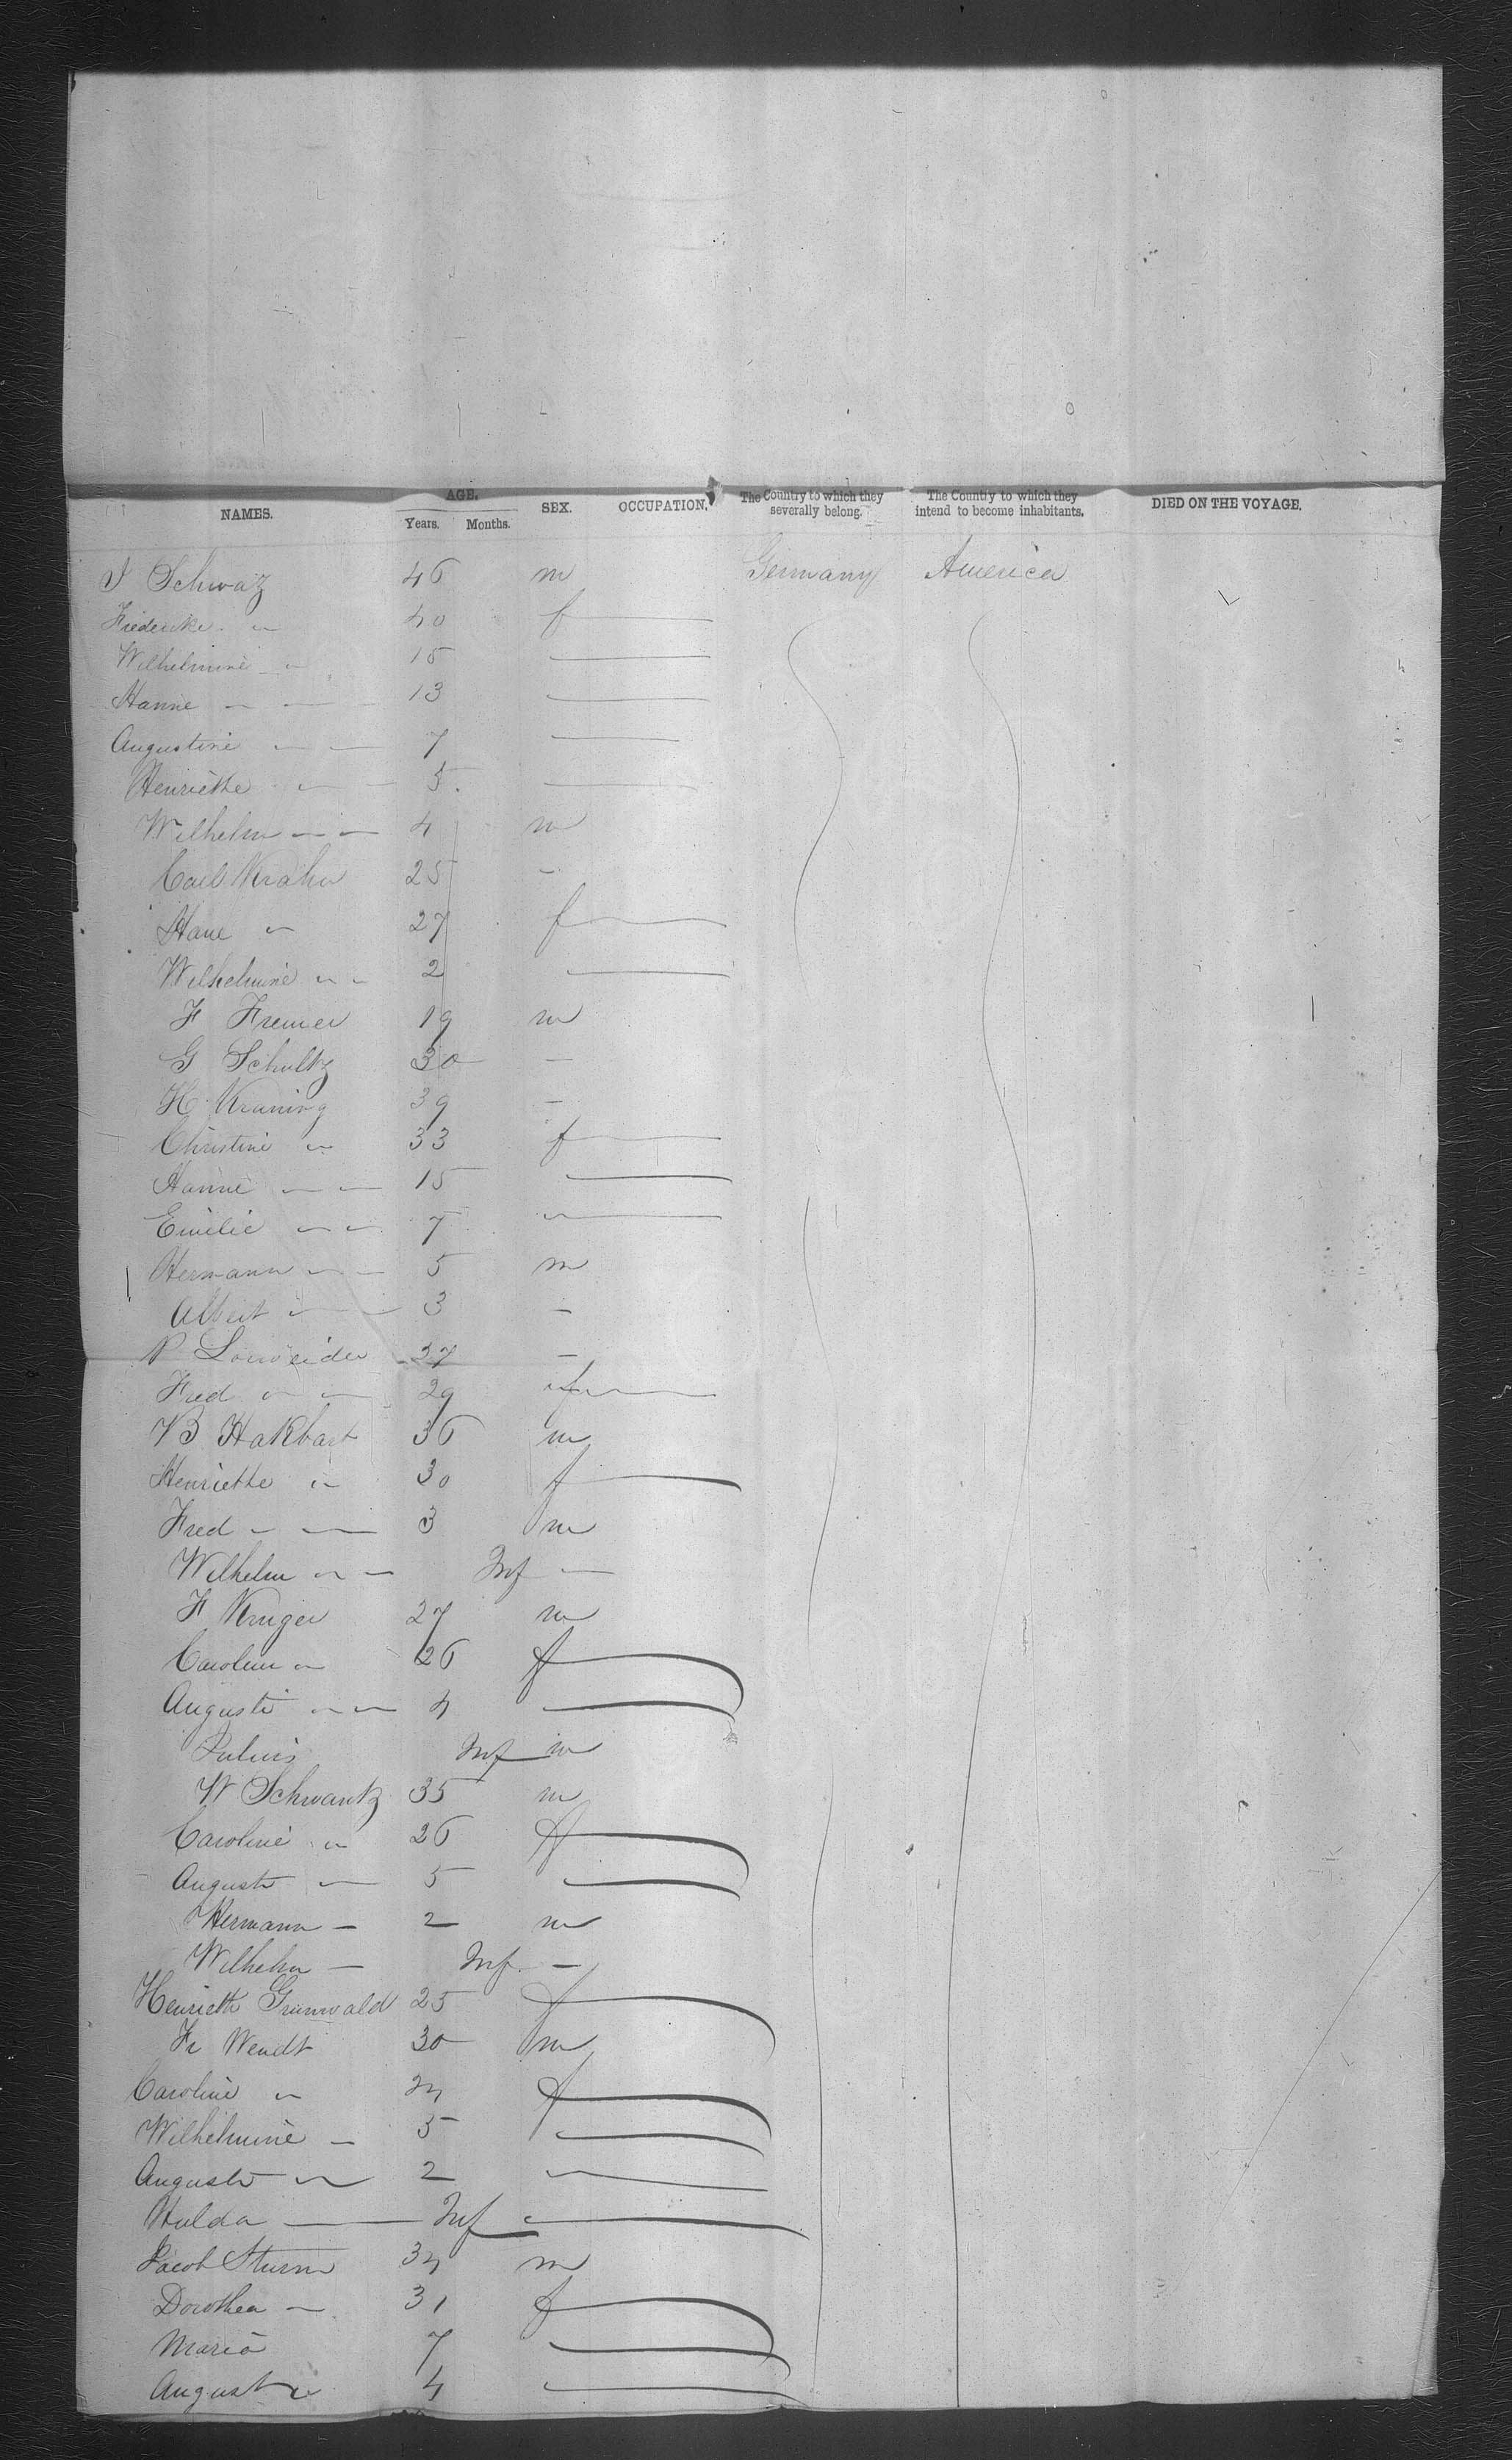 NAMES. AGE. Years. Months. SEX. OCCUPATION. The Country to which they severally belong. The Country to which they intend to become inhabitants. DIED ON THE VOYAGE.
J Schwaz 46 m Germany America
Friedericke " 40 f
Wilhelmine " 15
Hanne " 13
Augustine " 7
Henriette " 5
Wilhelm " 4 m
Carl Krahn 25 -
Hane " 27 f
Wilhelmine " 2
F Fremer 19 m
G Schultz 30 -
H Kruning 39 -
Christine " 33 f
Hanne " 15
Emilie " 7 "
Hermann " 5 m
Albert " 3 -
37 -
Fred " 29 f
Hakbart 36 m
Henriette " 30 f
Fred " 3 m
Wilhelm " Inf -
F Kruger 27 m
Caroline " 26 f
Auguste " 4
Julius Inf m
W Schwantz 35 m
Caroline " 26 f
Auguste " 5
Hermann - 2 m
Wilhelm - Inf. -
Henriette Grunwald 25 f
Fr Wendt 30 m
Caroline " 24 f
Wilhelmine - 5
Auguste " 2 "
Hulda - Inf "
Jacob Sturm 34 m
Dorothea - 31 f
Maria 7
Auguste 4